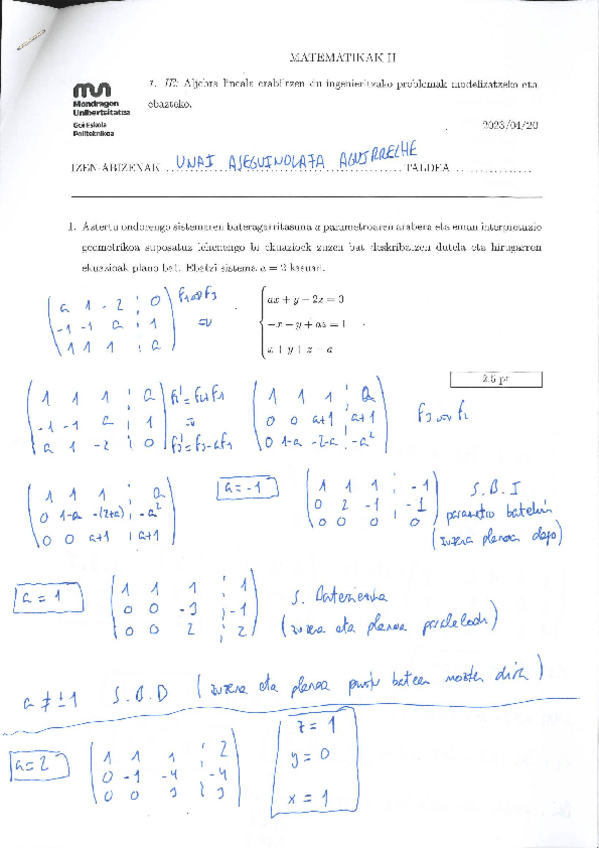 MATEMATIKAK II
mun
Mondragon
Unibertsitatea
Goi Eskola
Politeknikoa
1. IE: Aljebra lineala erabiltzen du ingenieritzako problemak modelizatzeko eta
ebazteko.
2023/04/20
IZEN-ABIZENAK UNAI AJEGUINOLAZA AGUIRRECHE TALDEA
1. Aztertu ondorengo sistemaren bateragarritasuna a parametroaren arabera eta eman interpretazio
geometrikoa suposatuz lehenengo bi ekuazioek zuzen bat deskribatzen dutela eta hirugarren
ekuazioak plano bat. Ebatzi sistema a = 2 kasuan.
ax + y − 2z = 0
−x − y + az = 1
x + y + z = a
2.5 pt
a 1 -2 ¦ 0 F1↔F3
-1 -1 a ¦ 1 ⇒
1 1 1 ¦ a
1 1 1 ¦ a F2'=F2+F1 1 1 1 ¦ a
-1 -1 a ¦ 1 ⇒ 0 0 a+1 ¦ a+1 F3↔F2
a 1 -2 ¦ 0 F3'=F3-aF1 0 1-a -2-a ¦ -a²
1 1 1 ¦ a
0 1-a -(2+a) ¦ -a²
0 0 a+1 ¦ a+1
a=-1
1 1 1 ¦ -1 S.B.I
0 2 -1 ¦ -1 parametro batekin
0 0 0 ¦ 0 (zuzena planoa dago)
a=1
1 1 1 ¦ 1
0 0 -3 ¦ -1
0 0 2 ¦ 2
S. Bateziena
(zuzena eta planoa paraleloak)
a ≠ ±1 S.B.D (zuzena eta planoa puntu batean mozten dira)
a=2
1 1 1 ¦ 2
0 -1 -4 ¦ -4
0 0 3 ¦ 3
z = 1
y = 0
x = 1